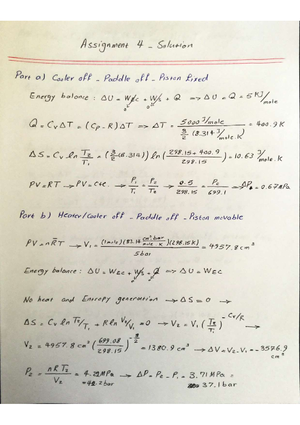 Assignment 4 - Solution
Part a) Cooler off - Paddle off - Piston fixed
Energy balance: ΔU = WEC + WS + Q ⇒ ΔU = Q = 5 KJ/mole
Q = Cv ΔT = (Cp - R) ΔT ⇒ ΔT = 5000 J/mole / (3/2 (8.314 J/mole.K)) = 400.9 K
ΔS = Cv ln T2/T1 = (3/2 (8.314)) ln (298.15 + 400.9 / 298.15) = 10.63 J/mole.K
PV = RT → PV = cte. → P1/T1 = P2/T2 → 0.5/298.15 = P2/699.1 → ΔP = 0.67 MPa
Part b) Heater/Cooler off - Paddle off - Piston movable
PV = nRT → V1 = (1mole)(83.14 cm³ bar/mole K)(298.15K) / 5bar = 4957.8 cm³
Energy balance: ΔU = WEC + WS + Q ⇒ ΔU = WEC
No heat and Entropy generation ⇒ ΔS = 0 →
ΔS = Cv ln T2/T1 + R ln V2/V1 = 0 → V2 = V1 (T2/T1)^-Cv/R →
V2 = 4957.8 cm³ (699.08/298.15)^-3/2 = 1380.9 cm³ → ΔV = V2 - V1 = -3576.9 cm³
P2 = nRT2/V2 = 4.21 MPa → ΔP = P2 - P1 = 3.71 MPa =
= 42.2 bar 37.1 bar